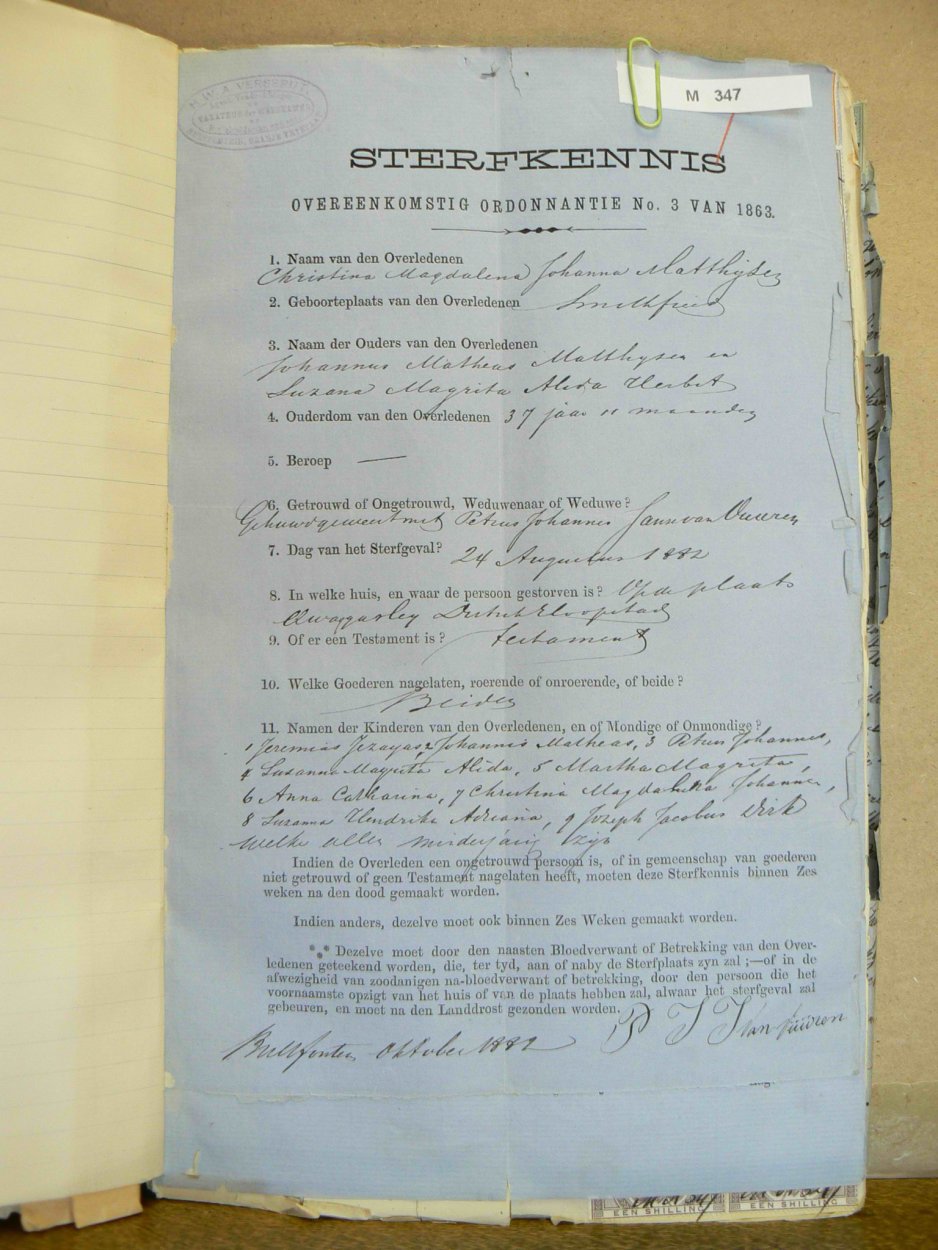 M 347
STERFKENNIS
OVEREENKOMSTIG ORDONNANTIE No. 3 VAN 1863.
1. Naam van den Overledenen
Christina Magdalena Johanna Matthijsen
2. Geboorteplaats van den Overledenen Smithfield
3. Naam der Ouders van den Overledenen
Johannus Matheas Matthysen en
Suzana Magrita Alida Herbst
4. Ouderdom van den Overledenen 37 jaar 11 maanden
5. Beroep —
6. Getrouwd of Ongetrouwd, Weduwenaar of Weduwe?
Gehuwd geweest met Petrus Johannes van Vuuren
7. Dag van het Sterfgeval? 24 Augustus 1882
8. In welke huis, en waar de persoon gestorven is? Op de plaats
9. Of er een Testament is? Testament
10. Welke Goederen nagelaten, roerende of onroerende, of beide?
Beiden
11. Namen der Kinderen van den Overledenen, en of Mondige of Onmondige?
1 Jeremias Jezayas, 2 Johannis Matheas, 3 Petrus Johannes,
4 Susanna Magrita Alida, 5 Martha Magrita,
6 Anna Catharina, 7 Christina Magdalena Johanna,
8 Suzanna Hendrika Adriana, 9 Jozeph Jacobus Dirk
welke allen minderjarig zijn
Indien de Overleden een ongetrouwd persoon is, of in gemeenschap van goederen
niet getrouwd of geen Testament nagelaten heeft, moeten deze Sterfkennis binnen Zes
weken na den dood gemaakt worden.
Indien anders, dezelve moet ook binnen Zes Weken gemaakt worden.
*** Dezelve moet door den naasten Bloedverwant of Betrekking van den Over-
ledenen geteekend worden, die, ter tyd, aan of naby de Sterfplaats zyn zal ;—of in de
afwezigheid van zoodanigen na-bloedverwant of betrekking, door den persoon die het
voornaamste opzigt van het huis of van de plaats hebben zal, alwaar het sterfgeval zal
gebeuren, en moet na den Landdrost gezonden worden.
P J J van Vuuren
Bultfontein Oktober 1882
EEN SHILLING EEN SHILLING